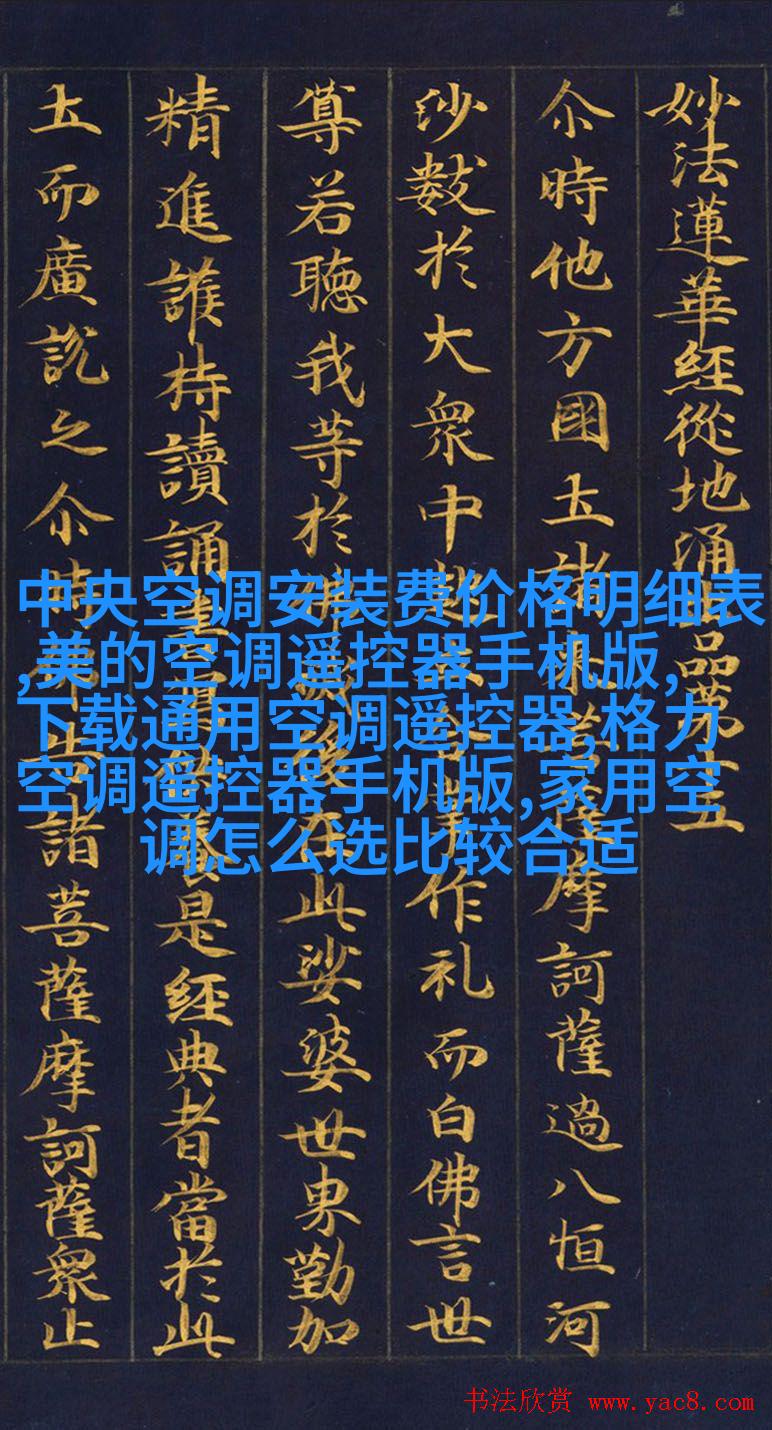 妙法蓮華經從地涌出品第十五
尒時他方國土諸来菩薩摩訶薩過八恒河
沙數於大衆中起立合掌作礼而白佛言世
尊若聽我等於佛滅後在此娑婆世界勤加
精進護持讀誦書寫供養是經典者當於此
土而廣說之尒時佛告諸菩薩摩訶薩衆止
中央空调安装费价格明细表
,美的空调遥控器手机版,
下载通用空调遥控器,格力
空调遥控器手机版,家用空
调怎么选比较合适
书法欣赏 www.yac8.com